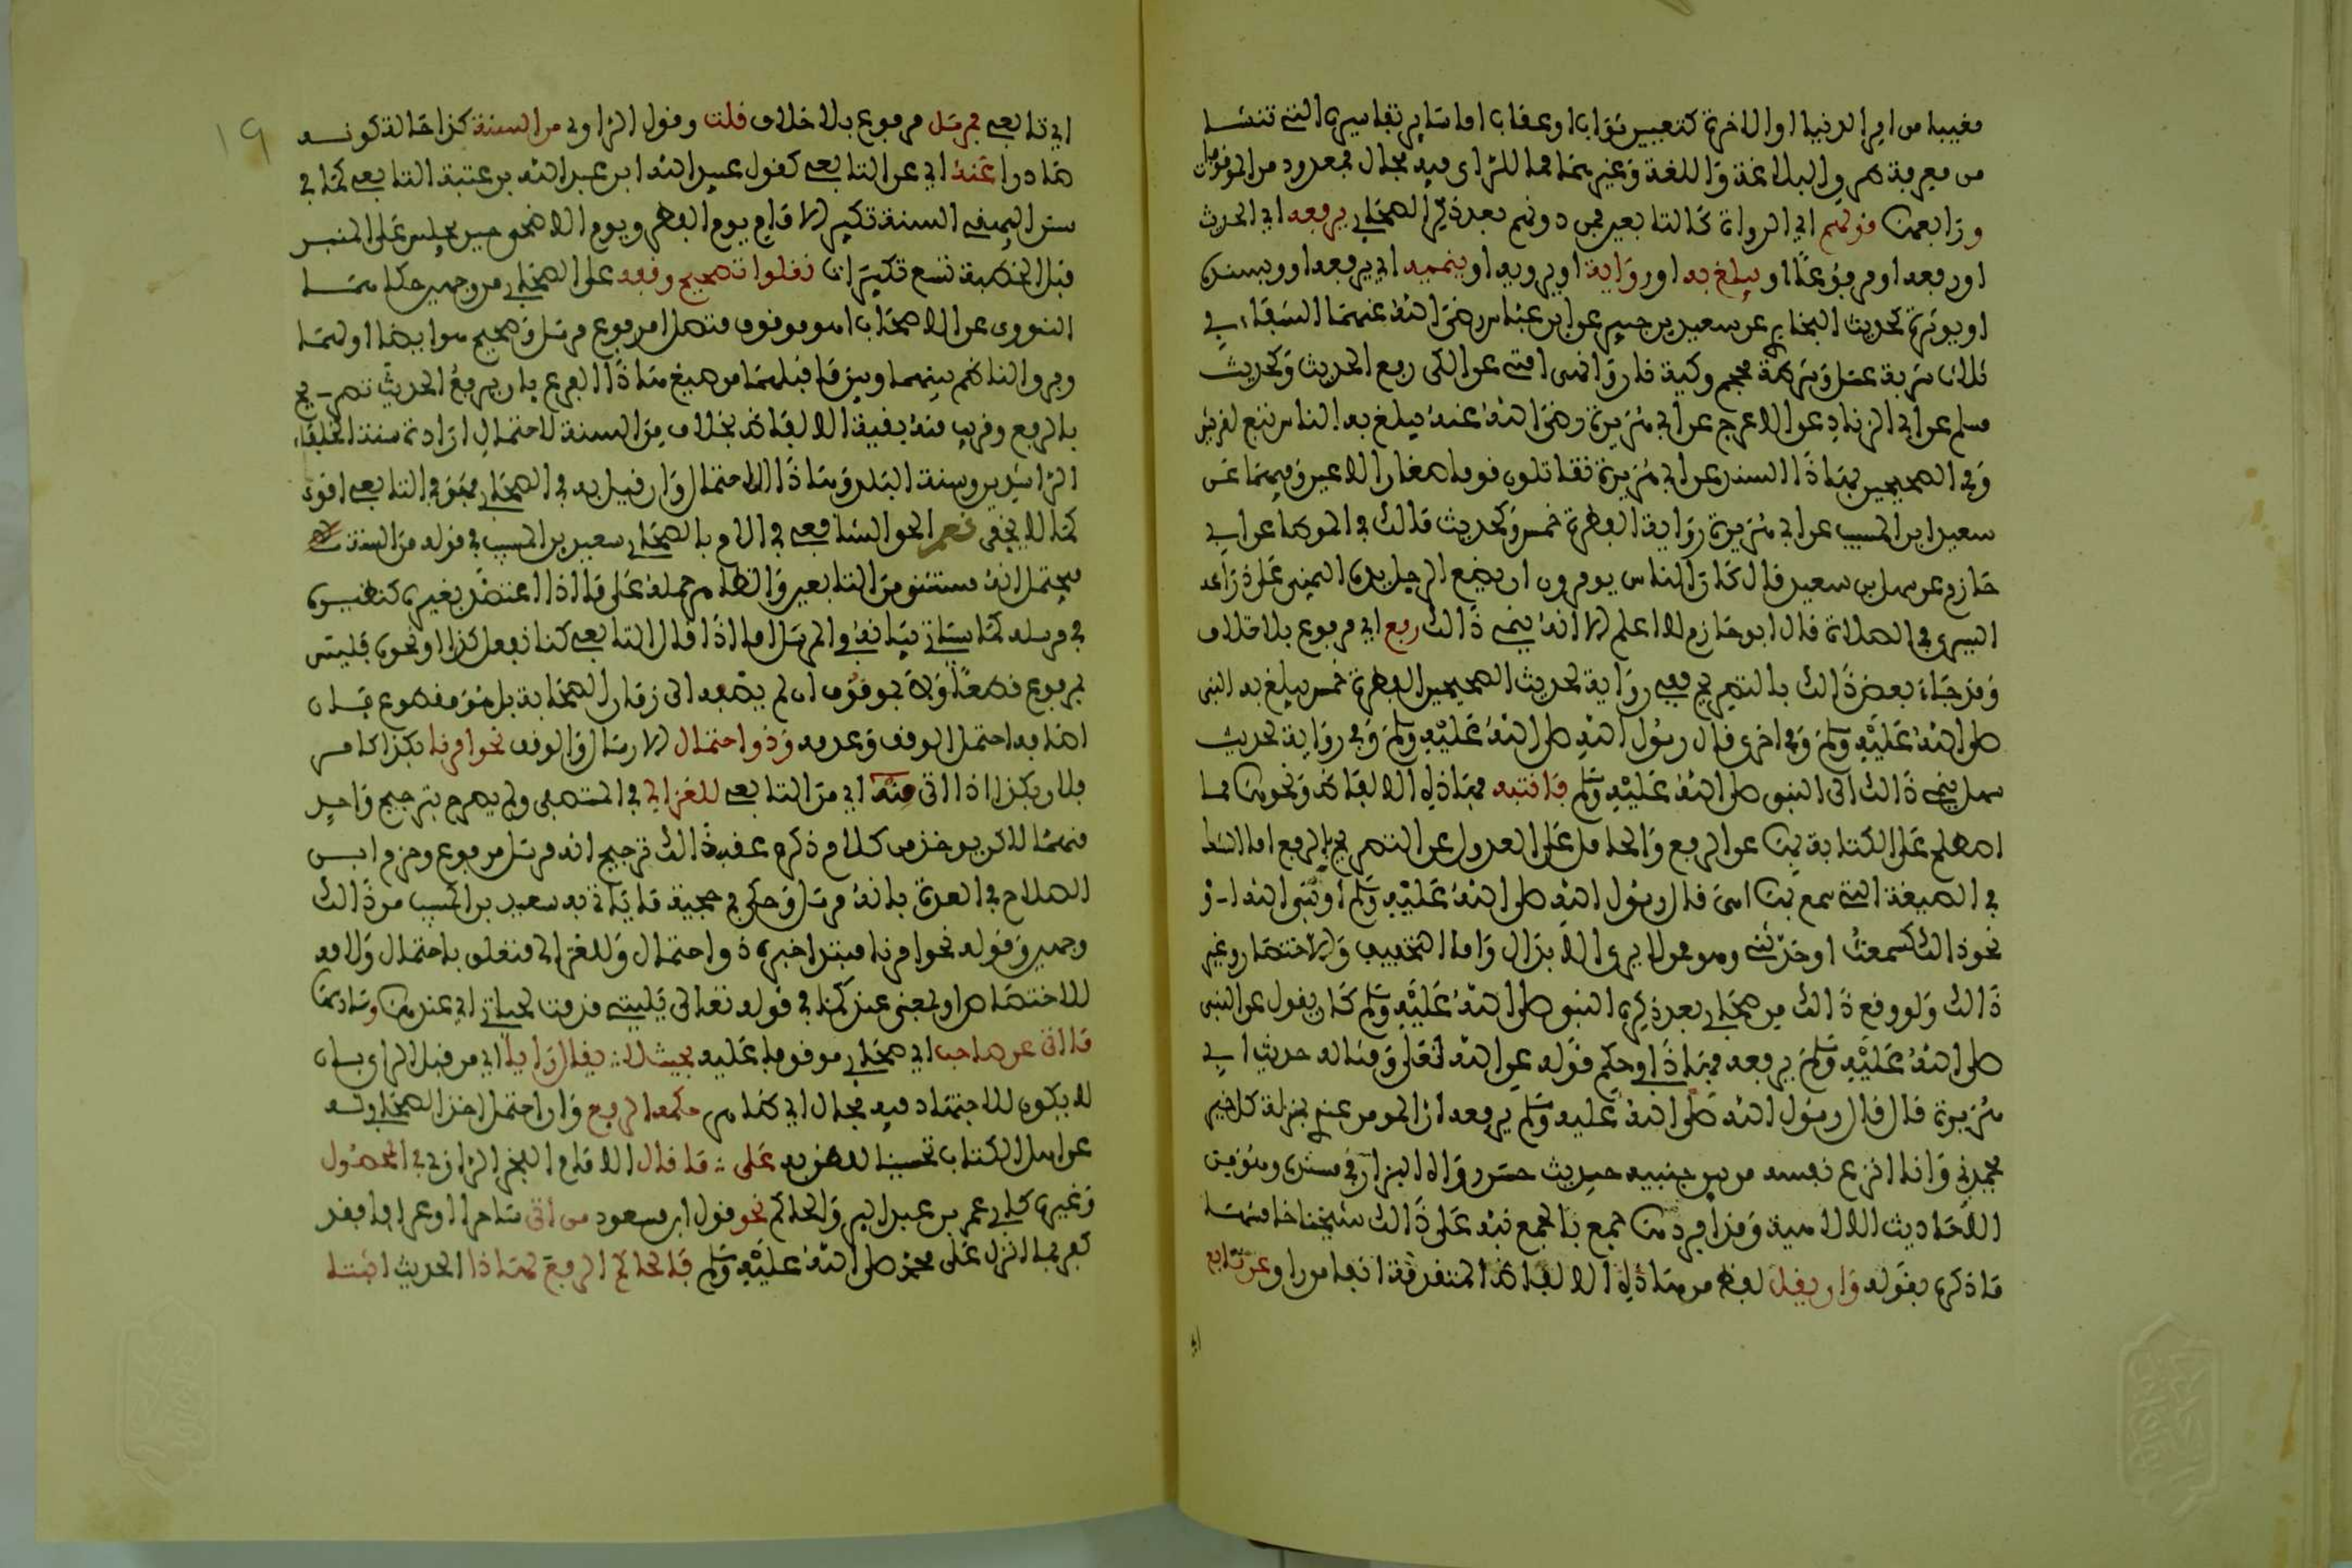 مغيبا من امر الدنيا او الاخرة كتعيين ثواب او عقاب اما سائر تفاسيره التي تنشا
من معرفة طرق البلاغة واللغة وغيرهما مما للراى فيه مجال فمعدود من الموقوفات
وقولهم اي الرواة كالتابعين فمن دونهم بعد ذكر الصحابي يرفعه اي الحديث
او رفعه او مرفوعا او يبلغ به او رواية او يرويه او ينميه اي يرفعه او يسنده
او يوثره كحديث البخاري عن سعيد بن جبير عن ابن عباس رضي الله عنهما الشفاء في
ثلاث شربة عسل وشرطة محجم وكية نار وانهى امتي عن الكى رفع الحديث وكحديث
مسلم عن ابي الزناد عن الاعرج عن ابي هريرة رضي الله عنه يبلغ به الناس تبع لقريش
وفي الصحيحين بهذا السند عن ابي هريرة تقاتلون قوما صغار الاعين وفيهما عن
سعيد ابن المسيب عن ابي هريرة رواية الفطرة خمس وكحديث مالك في الموطا عن ابي
حازم عن سهل بن سعد قال كان الناس يومرون ان يضع الرجل يده اليمنى على ذراعه
اليسرى في الصلاة قال ابو حازم لا اعلم الا انه ينمي ذالك رفع اي مرفوع بلا خلاف
وقد جاء بعض ذالك بالتصريح ففي رواية لحديث الصحيحين الفطرة خمس يبلغ به النبي
صلى الله عليه وسلم وفي اخرى قال رسول الله صلى الله عليه وسلم وفي رواية لحديث
سهل ينمي ذالك الى النبي صلى الله عليه وسلم فانتبه فهاذه الالفاظ ونحوها مما
اصطلح على الكتابة بها عن الرفع والحامل على العدول عن التصريح بالرفع اما الشك
في الصيغة التي سمع بها اهي قال رسول الله صلى الله عليه وسلم او نبي الله او
نحو ذالك كسمعت او حدثني وهو ممن لا يرى الابدال واما التخفيف والاختصار وغير
ذالك ولو وقع ذالك من صحابي بعد ذكره النبي صلى الله عليه وسلم كان يقول عن النبي
صلى الله عليه وسلم يرفعه فهذا في حكم قوله عن الله تعلى ومثاله حديث ابي
هريرة قال قال رسول الله صلى الله عليه وسلم يرفعه ان المومن عندي بمنزلة كل خير
يحمدني وانا انزع نفسه من بين جنبيه حديث حسن رواه البزار في مسنده وهو من
الاحاديث الالاهية وقد افردها جمع بالجمع نبه على ذالك شيخنا خاتمتها
ما ذكره بقوله وان يقل لفظ من هاذه الالفاظ المتفرقة انفا من راو عن تابع
اي تابعي فمرسل مرفوع بلا خلاف قلت وقول الراوي من السنة كذا حالة كونه
صادرا عنه اي عن التابعي كقول عبيد الله ابن عبد الله بن عتبة التابعي كما في
سنن البيهقي السنة تكبير الامام يوم الفطر ويوم الاضحى حين يجلس على المنبر
قبل الخطبة تسع تكبيرات نقلوا تصحيح وقفه على الصحابي من وجهين حكاهما
النووي عن الاصحاب اهو موقوف متصل او مرفوع مرسل وصحح هو ايضا اولهما
والفرق بينهما وبين ما قبلهما من صيغ هذا الفرع بان يرفع الحديث تصريح
بالرفع وقريب منه بقية الالفاظ بخلاف من السنة لاحتمال ارادة سنة الخلفاء
الراشدين وسنة البلد وهاذا الاحتمال وان قيل به في الصحابي فهو في التابعي اقوى
كما لا يخفى نعم الحق الشافعي في الام بالصحابي سعيد بن المسيب في قوله من السنة
فيحتمل انه مستثنى من التابعين والظاهر حمله على ما اذا اعتضد بغيره كنظيره
في مرسله كما سياتي بيانه في المرسل اما اذا قال التابعي كنا نفعل كذا او نحوه فليس
بمرفوع قطعا ولا بموقوف ان لم يضفه الى زمان الصحابة بل هو مقطوع فان
اضافه احتمل الوقف وعدمه وذو احتمال الارسال والوقف نحو امرنا بكذا كامر
فلان بكذا اذا اتى منه اي من التابعي للغزالي في المستصفى ولم يصرح بترجيح واحد
منهما لاكن يوخذ من كلام ذكره عقب ذالك ترجيح انه مرسل مرفوع وجزم ابن
الصباغ في العدة بانه مرسل وحكى في حجية ما ياتي به سعيد بن المسيب من ذالك
وجهين وقوله نحو امرنا مبتدا خبره ذو احتمال وللغزالي متعلق باحتمال ولامه
للاختصاص او بمعنى عند كما في قوله تعالى يليتني قدمت لحياتي اي عندها وسادسها
ما اتى عن صاحب اي صحابي موقوفا عليه بحيث لا يقال رايا اي من قبل الراى بان
لا يكون للاجتهاد فيه مجال اي ظاهر حكمه الرفع وان احتمل اخذ الصحابي له
عن اهل الكتاب تحسينا للظن به على ما قال الامام الفخر الرازي في المحصول
وغيره كابي عمر بن عبد البر والحاكم نحو قول ابن مسعود من اتى ساحرا او عرافا فقد
كفر بما انزل على محمد صلى الله عليه وسلم فالحاكم الرفع لهاذا الحديث اثبتا